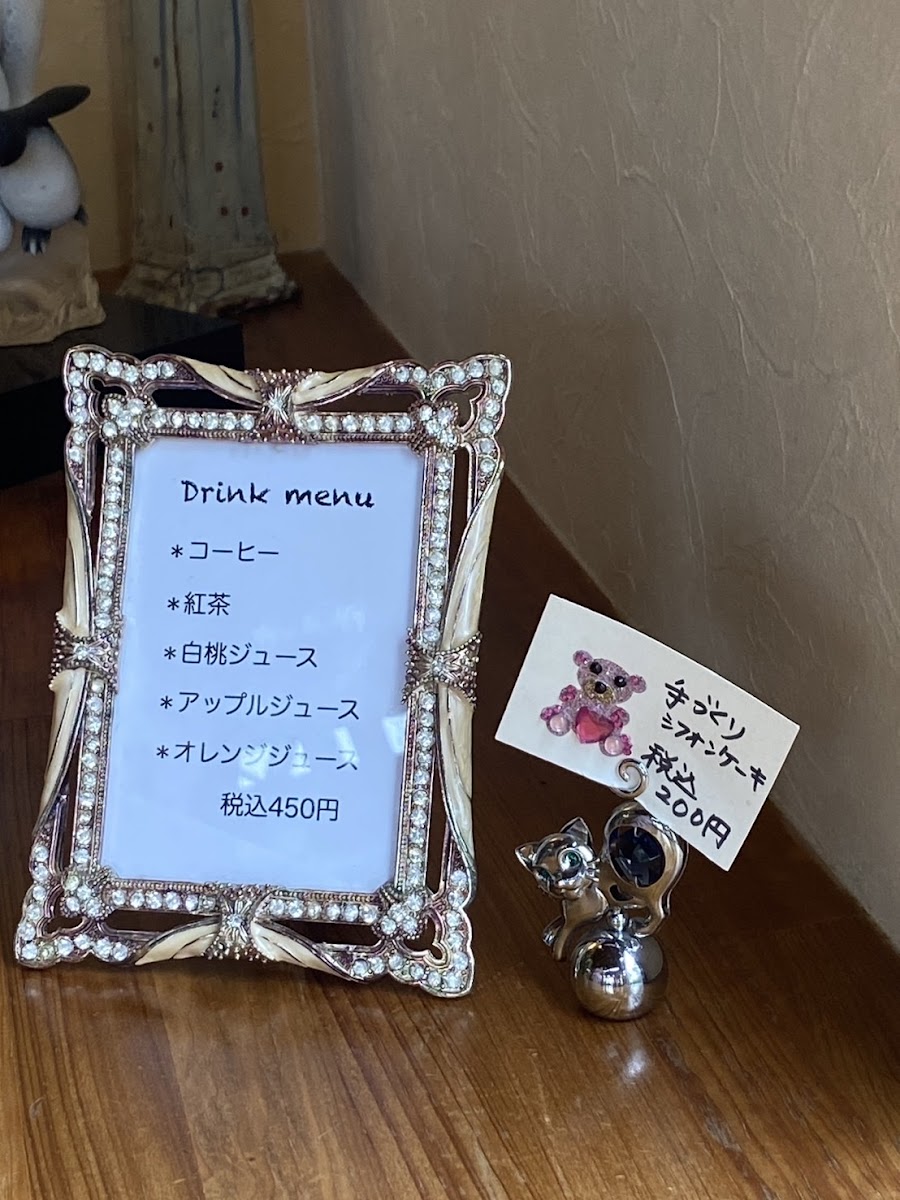 Drink menu
*コーヒー
*紅茶
*白桃ジュース
*アップルジュース
*オレンジジュース
税込450円
手づくり
シフォンケーキ
税込
200円